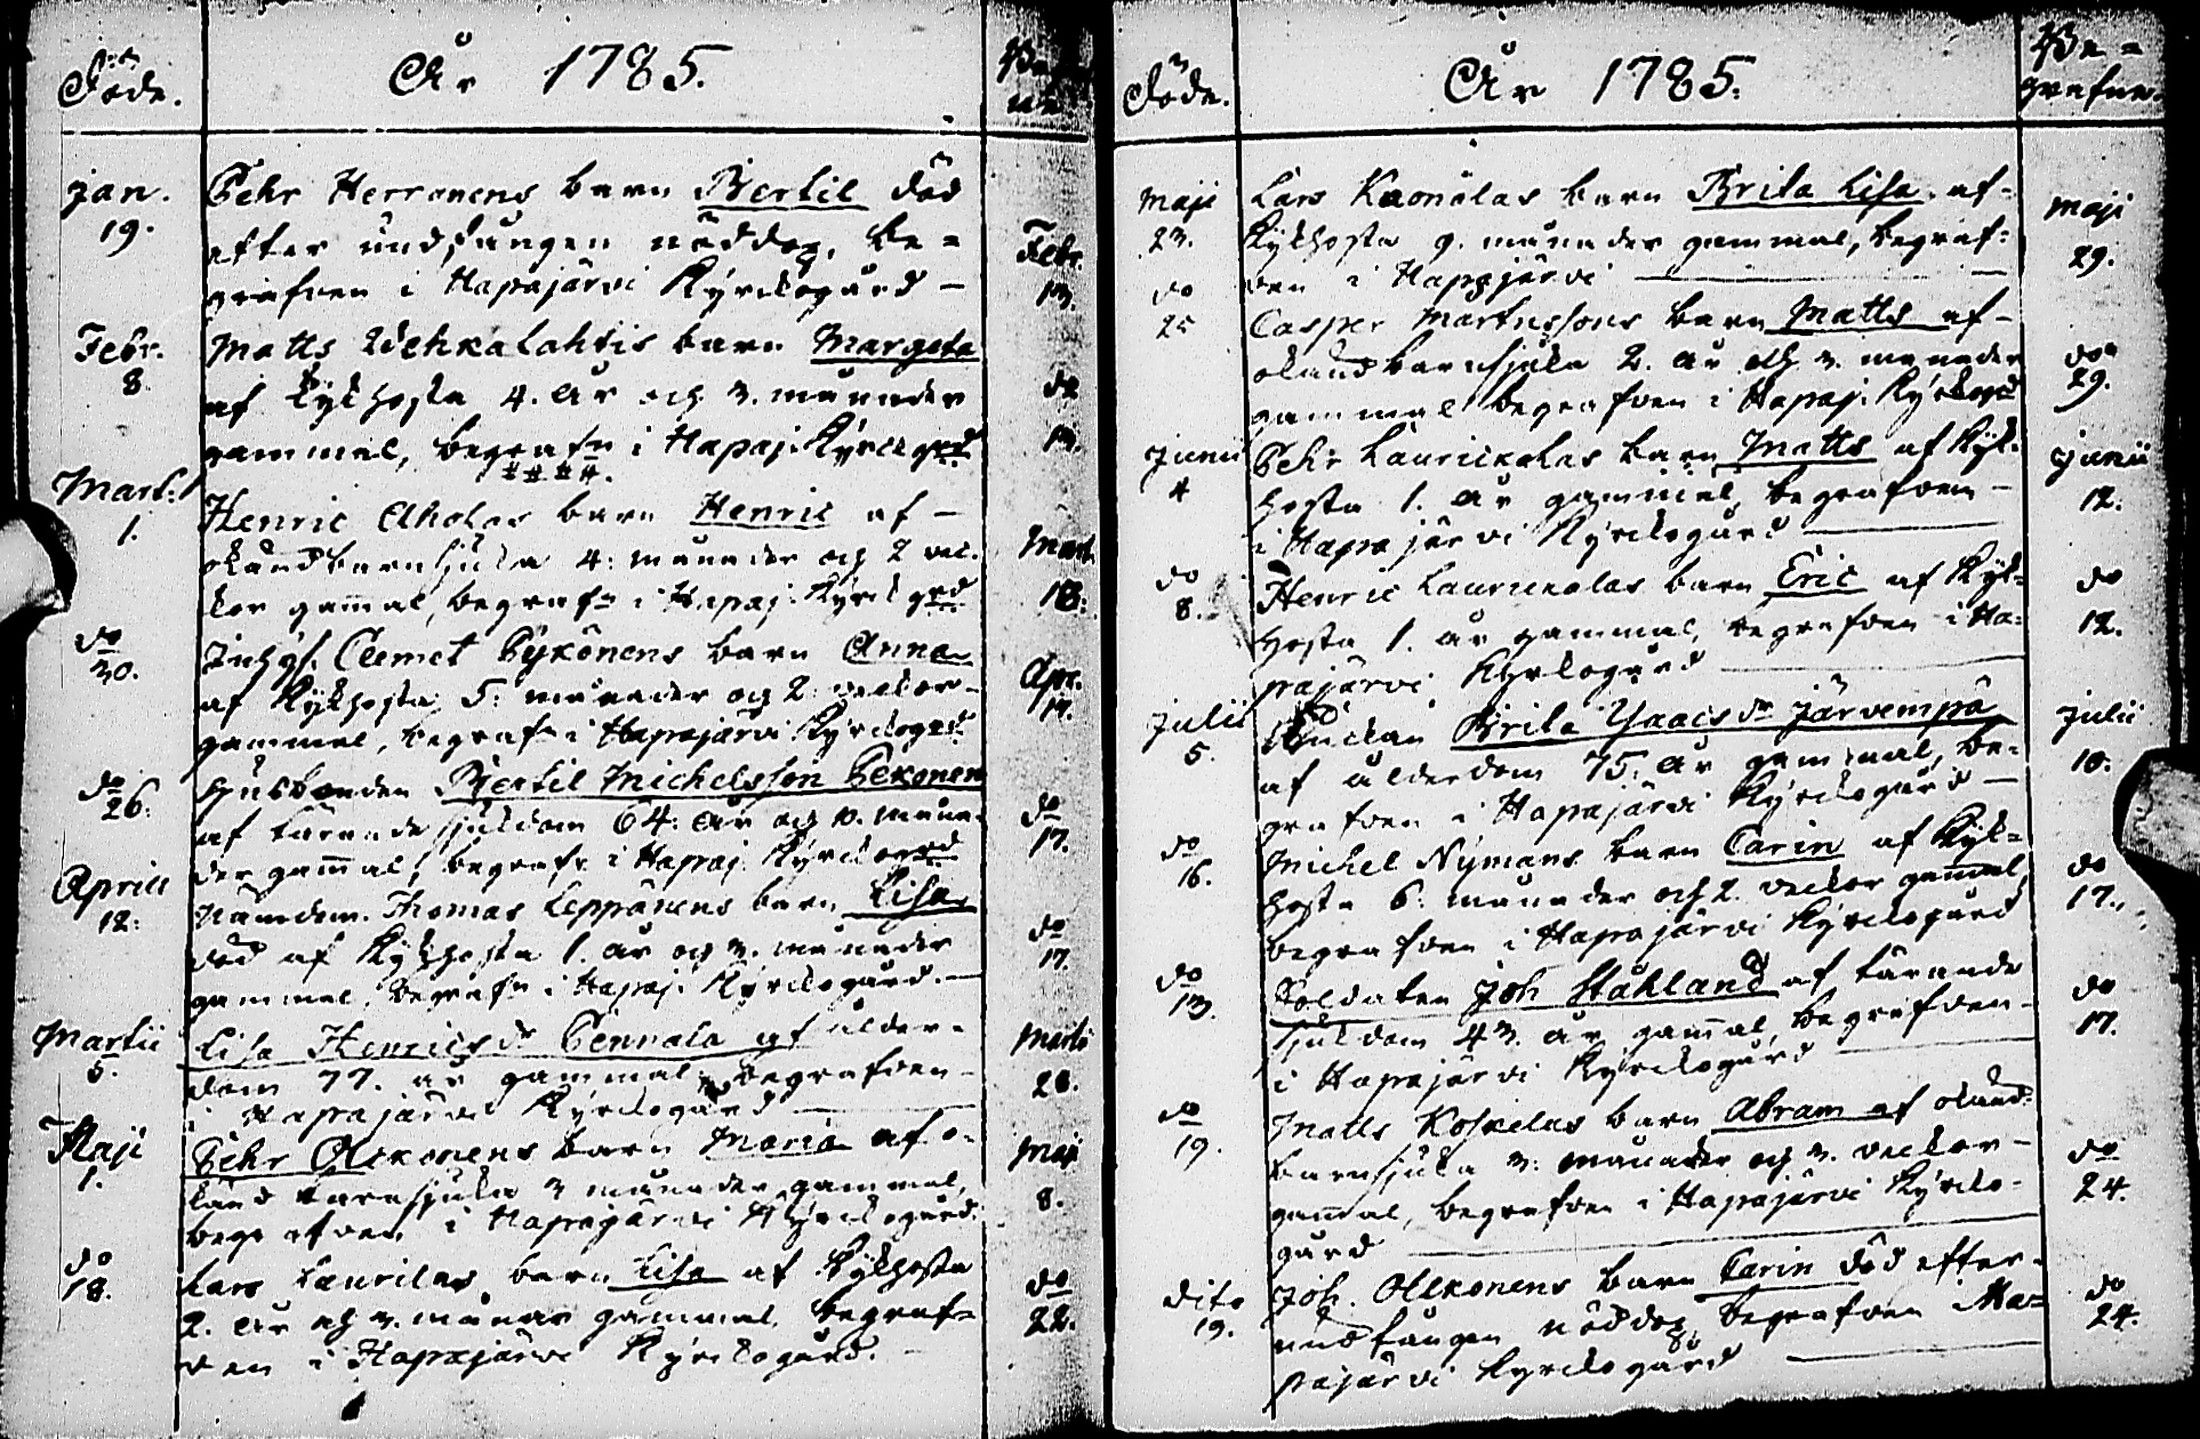 Döde.
År 1785.
Jan. 19.
Pehr Herronens barn Bertil död
efter undfången nöddop, be=
grafven i Hapajärvi Kyrckogård –
Febr. 13.
Febr. 8.
Matts Wehkalahtis barn Margeta
af Kykhosta 4. år och 3. månader
gammal, begrafn i Hapaj. Kyrckgrd
do 13.
Mart: 1.
Henric Aholas barn Henric af –
okänd barnsjuka 4: månader och 2 vec.
kor gamal, begrafn i Hapaj. Kyrckgrd
Mart. 13.
do 30.
Inhys. Clemet Pykönens barn Anna
af Kykhosta 5: månader och 2 veckor –
gammal, begrafn i Hapajärvi Kyrckogrd
Apr. 17.
do 26.
Husbonden Bertil Michelsson Pekonen
af tärande sjukdom 64: år och månader
gamal, begrafn i Hapaj. Kyrckogrd
do 17.
Aprill 12:
Nämndem. Thomas Leppänens barn Lisa
död af Kykhosta 1. år och 3. månader
gammal, begrafn i Hapaj. Kyrckogård. –
do 17.
Martii 5.
Lisa Henricsdr Pennala af ålder=
dom 77. år gammal, begrafven –
i Hapajärvi Kyrckogård
Martii 20.
Maji 1.
Pehr Ollekonens barn Maria af o=
känd barnsjuka 3 månader gammal,
begrafven i Hapajärvi Kyrckogård.
Maji 8.
do 18.
Lars Laurilas barn Lisa af Kykhosta
2. år och 3. månar gammal, begraf=
ven i Hapajärvi Kyrckogård. –
do 22.
Döde.
År 1785.
Be=
grafne.
Maji 23.
Lars Kaonolas barn Brita Lisa af=
Kykhosta 9. månader gammal, begraf=
ven i Hapajärvi
Maji 29.
do 25
Casper Martussons barn Matts af –
okänd barnsjuka 2. år och 3. månader
gammal begrafven i Hapaj. Kyrckogrd
do 29.
Junii 4
Pehr Laurickalas barn Matts af Kyk=
hosta 1. år gammal, begrafven –
i Hapajärvi Kyrckogård
Junii 12.
do 8.
Henric Laurickalas barn Eric af Kyk=
hosta 1. år gammal, begrafven i Ha=
pajärvi Kyrckogård
do 12.
Julii 5.
Änckan Brita Ysaacsdr Järvempä
af ålderdom 75. år gammal, be=
grafven i Hapajärvi Kyrckogård –
Julii 10.
do 16.
Michel Nymans barn Carin af Kyk=
hosta 6. månader och 2. veckor gamal,
begrafven i Hapajärvi Kyrckogård
do 17.
do 13.
Soldaten Joh Ståhland af tärande
sjukdom 43. år gamal, begrafven –
i Hapajärvi Kyrckogård
do 17.
do 19.
Matts Koskelas barn Abram af okänd
barnsjuka 3: månader och 3. veckor –
gamal, begrafven i Hapajärvi Kyrcko=
gård
do 24.
dito 19.
Joh. Ollekonens barn Carin död efter=
undfången nöddop, begrafven i Ha=
pajärvi Kyrckogård
do 24.